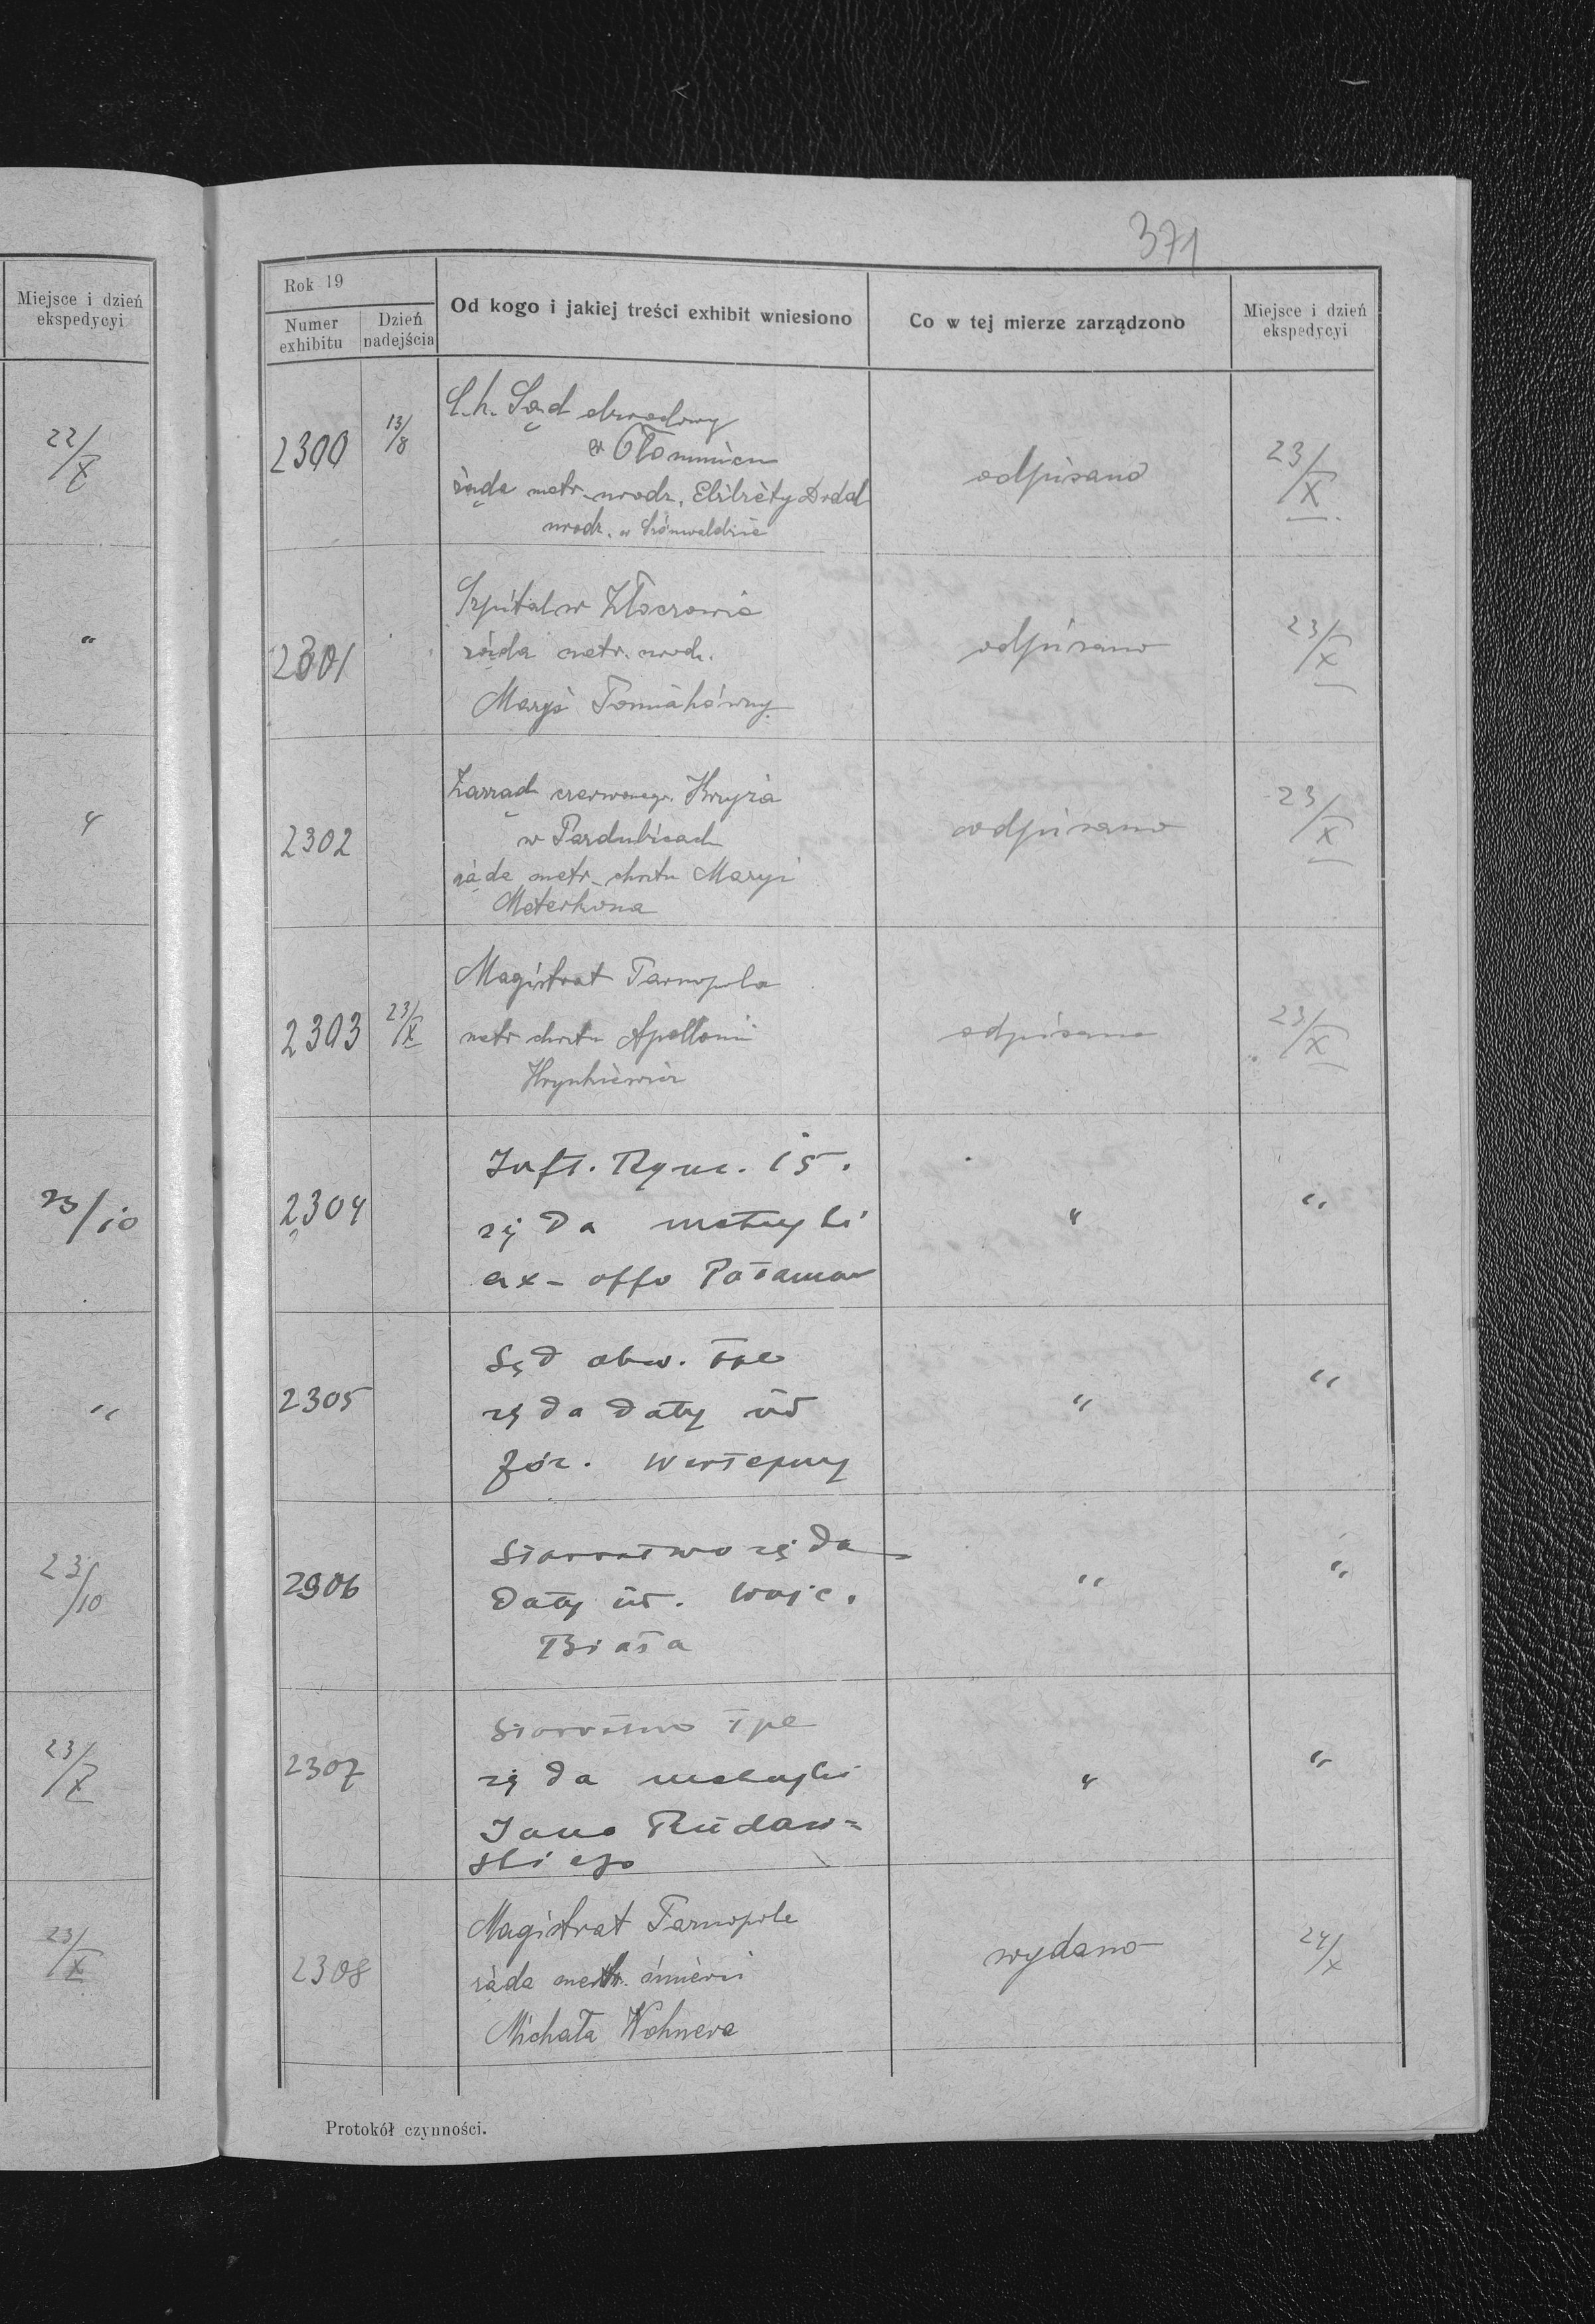 371
Miejsce i dzień
ekspedycyi
22/X
"
"
23/10
"
23/10
23/X
23/X
Rok 19
Numer
exhibitu
Dzień
nadejścia
Od kogo i jakiej treści exhibit wniesiono
Co w tej mierze zarządzono
Miejsce i dzień
ekspedycyi
2300
13/8
C. k. Sąd obwodowy
w Ołomuńcu
żąda metr. urodz. Elżbiety Drdal
urodz. w
odpisano
23/X
2301
Szpital w Złoczowie
żąda metr. urodz.
Maryi Tomiakówny
odpisano
23/X
2302
Zarząd czerwonego Krzyża
w Pardubicach
żąda metr. chrztu Maryi
odpisano
23/X
2303
23/X
Magistrat Tarnopola
metr chrztu Apollonii
Hrynkiewicz
odpisano
23/X
2304
15.
żąda metryki
ex-offo
"
"
2305
Sąd obw. Tpl
żąda daty ur
Józ. Wertepny
"
"
2306
Starostwo żąda
Daty ur. Wojc.
Biała
"
"
2307
Starostwo Tpl
żąda metryki
Jana Rudaw=
skiego
"
"
2308
Magistrat Tarnopola
żąda metr. śmierci
Michała Wohnera
wydano
24/X
Protokół czynności.